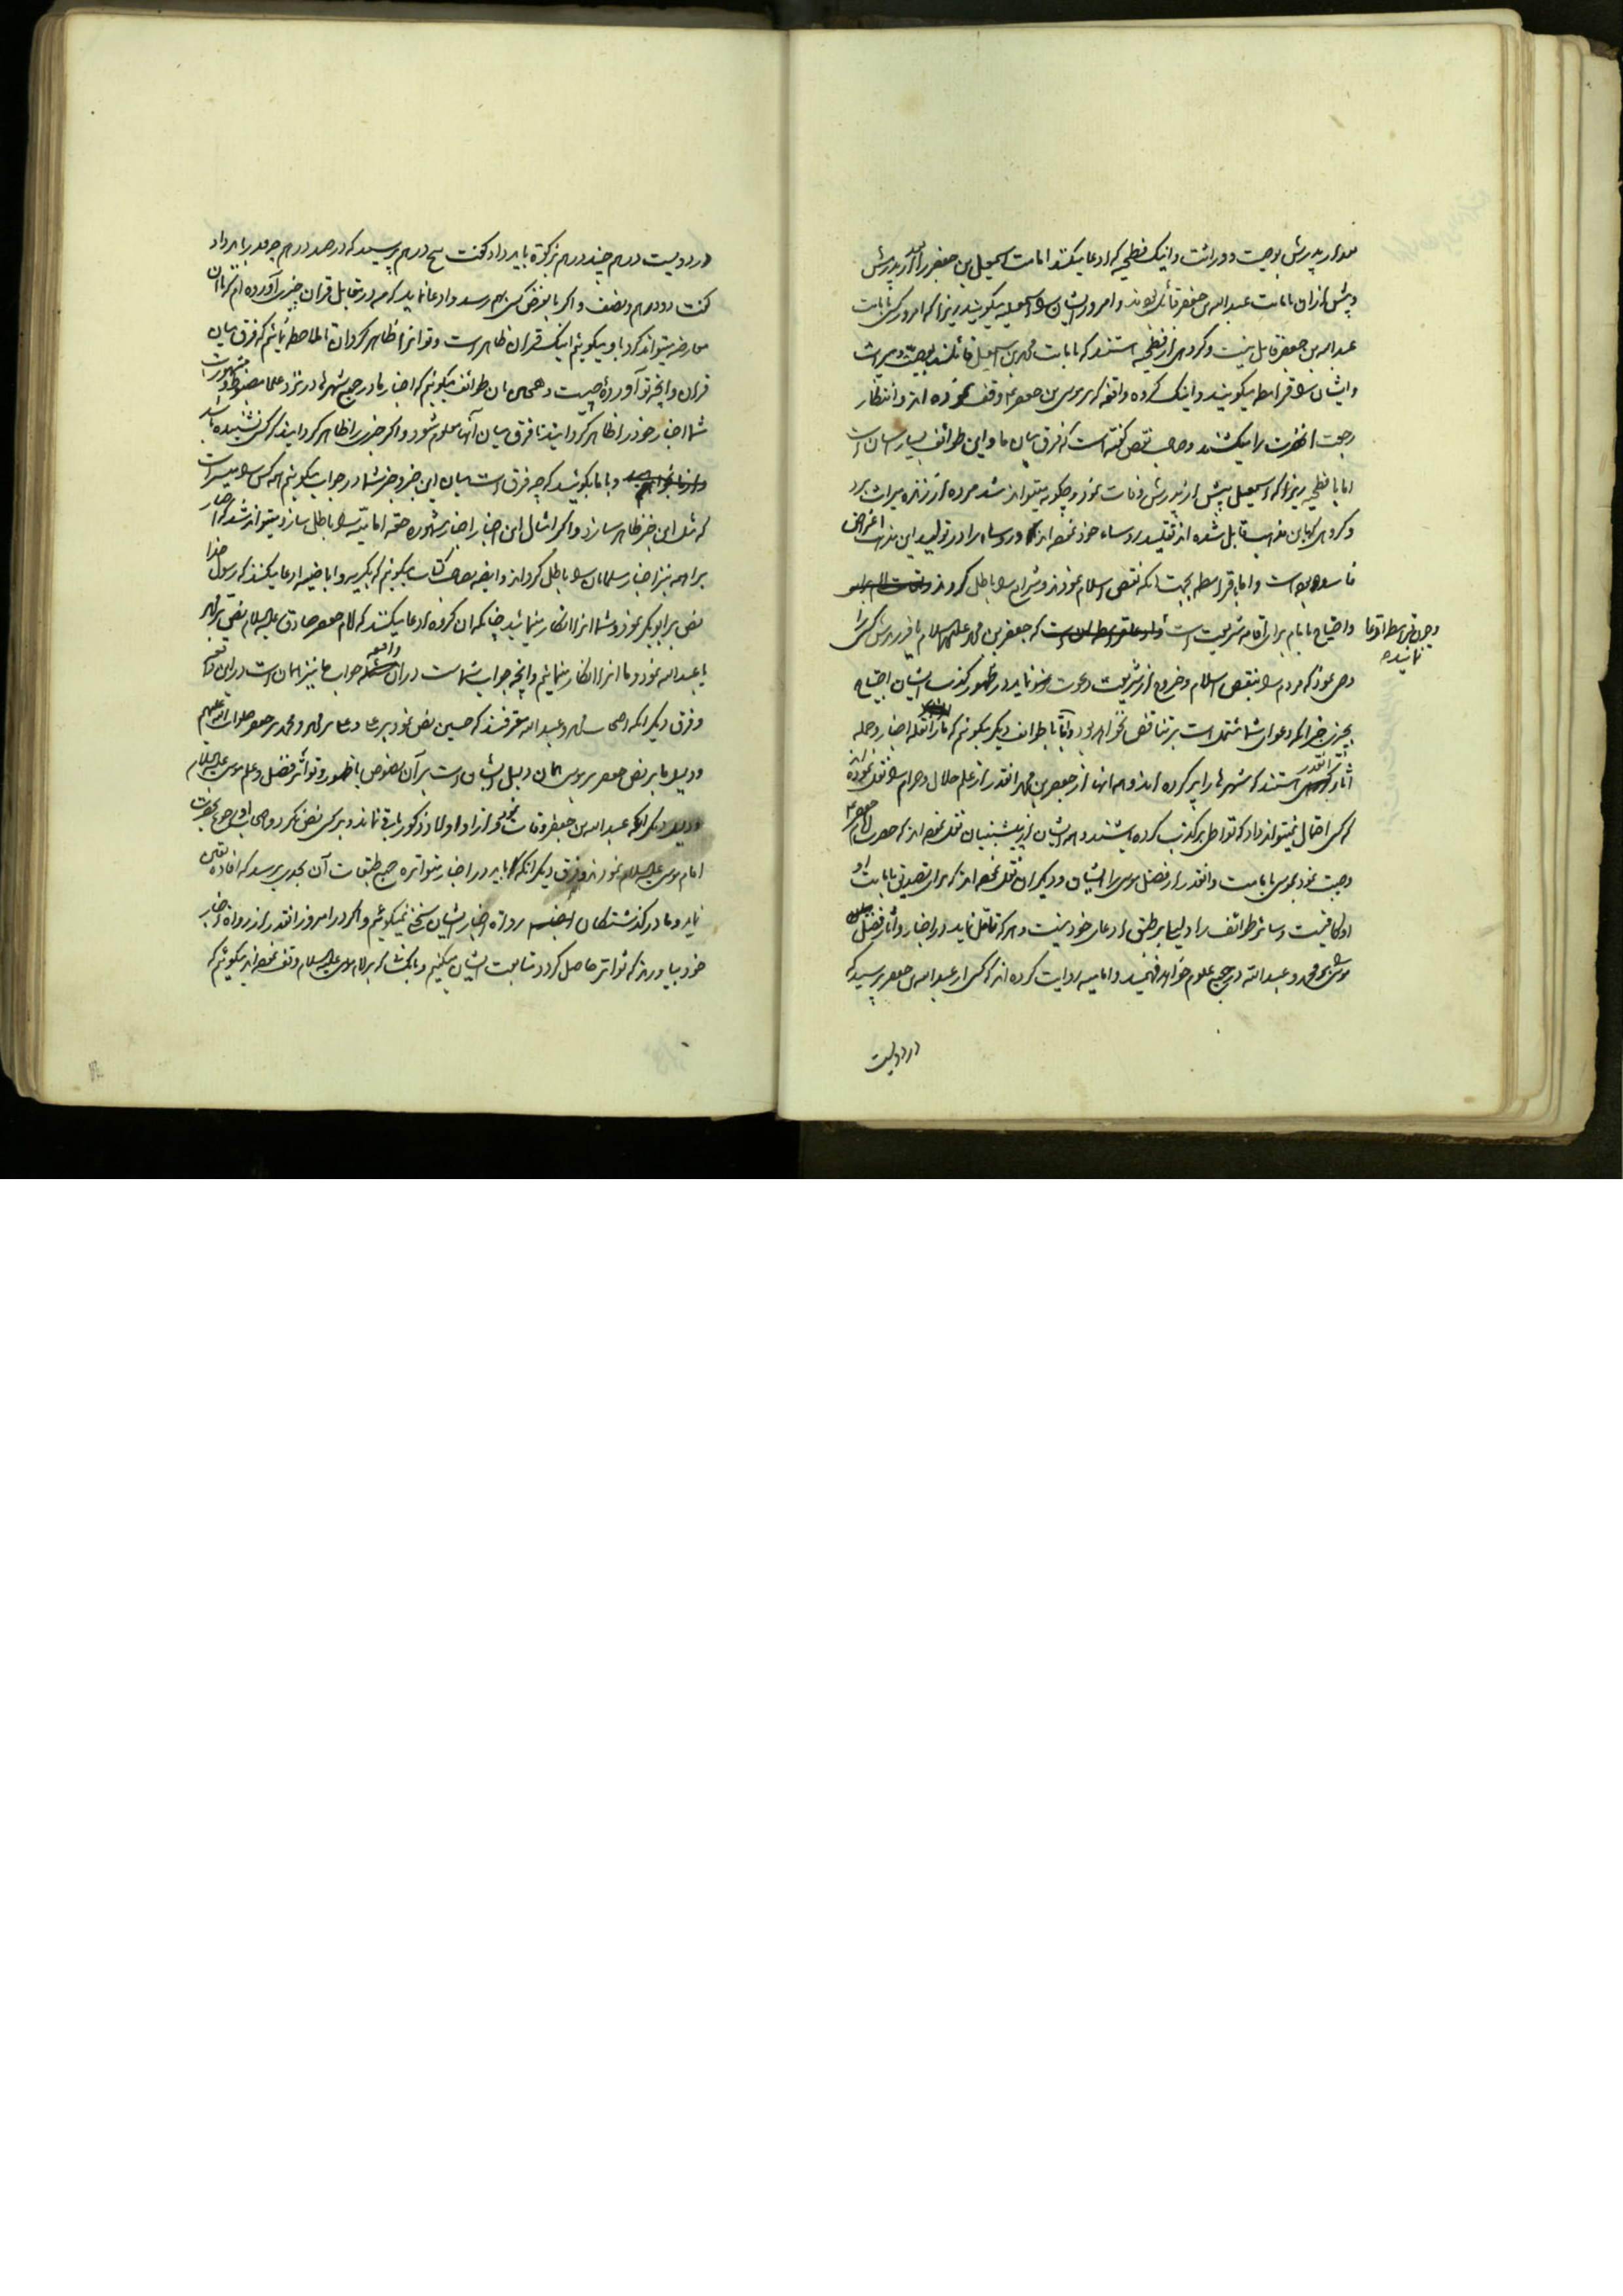 بعد از پدرش بوصیت و وراثت و اینک فطحیه که ادعا میکنند امامت اسمعیل بن جعفر را بعد از پدرش
و پیش ازان بامامت عبدالله بن جعفر قائل بودند و امروز ایشان را اسمعیلیه میگویند زیرا که امروز کسی بامامت
عبدالله بن جعفر قایل نیست و گروهی از فطحیه هستند که بامامت محمد بن اسمعیل قائلند بوصیت و میراث
و ایشان را قرامطه میگویند و اینک گروه واقفه که بر موسی بن جعفر ع وقف نموده اند و انتظار
رجعت آنحضرت را میکشند و صاحب نقص گفته است که فرق میان ما و این طوائف بسیار آسان است
اما با فطحیه زیرا که اسمعیل پیش از پدرش وفات نمود و چگونه میتواند شد مرده از زنده میراث برد
و گروهی که باین مذهب قایل شده اند تقلید روساء خود نموده اند و روساء را در تولید این مذهب اغراض
فاسده بوده است و اما با قرامطه بجهت آنکه نقض اسلام نمودند و شرایع را باطل کردند
و احتیاج بامام برای اقامه شریعت است که جعفر بن محمد علیهما السلام یا فرزندش کسی را
و چون قرامطه ادعا
نمایند
وصی نمود که مردم را بنقض اسلام و خروج از شریعت دعوت نماید در ظهور کذب ایشان احتیاج
بچیزی جز آنکه دعوای شما مشتمل است بر تناقض نخواهد بود و اما با طوائف دیگر میگوئیم که ما را نقله اخبار و حمله
آثار آنقدر هستند که شهرها را پر کرده اند و همه آنها از جعفر بن محمد آنقدر از علم حلال و حرام را نقل نموده اند
که کسی احتمال نمیتواند داد که تواطی بر کذب کرده باشند و همه ایشان از پیشینیان نقل نموده اند که حضرت امام جعفر ع
وصیت نمود بموسی بامامت و آنقدر از فضل موسی را ایشان و دیگران نقل نموده اند که برای تصدیق بامامت او
او کافیست و سائر طوائف را دلیلی بر طبق ادعای خود نیست و هر که تامل نماید در اخبار و آثار فضل میان
موسی و محمد و عبدالله در جمیع علوم خواهد فهمید و امامیه روایت کرده اند که کسی از عبدالله بن جعفر پرسید که
در دویست
در دویست درهم چند درهم زکوة باید داد گفت پنج درهم پرسید که در صد درهم چه قدر باید داد
گفت دو درهم و نصف و اگر بالفرض کسی بهم رسد و ادعا نماید که من در مقابل قران چیزی آورده ام که با آن
معارضه میتواند کرد با و میگوئیم اینک قران ظاهر است و تو آنرا ظاهر گردان تا ملاحظه نمائیم که فرق میان
قران و آنچه تو آورده‌ٔ چیست و همچنین بان طوائف میگوئیم که اخبار ما در جمیع شهرها در نزد علما مضبوط و مشهور است
شما اخبار خود را ظاهر گردانید تا فرق میان آنها معلوم شود و اگر خبری را ظاهر گردانید که کسی نشنیده باشد
و با ما بگوئید که چه فرق است میان این خبر و خبر شما در جواب میگوئیم همه کس را میسر است
که مثل این خبر ظاهر سازد و اگر امثال این اخبار اخبار مشهوره حقه امامیه را باطل سازد میتواند شد که اخبار
براهمه نیز اخبار مسلمانان را باطل گرداند و ایضا بصاحب کتاب میگوئیم که بکریه و اباضیه ادعا میکنند که رسول خدا
نص بر ابوبکر نمود و شما آنرا انکار مینمائید چنانکه آن گروه ادعا میکنند که امام جعفر صادق علیه السلام نص بر محمد
یا عبدالله نمود و ما آنرا انکار مینمائیم و آنچه جواب شماست دران واقعه جواب ما نیز همان است در این واقعه
و فرق دیگر آنکه اصحاب محمد و عبدالله معترفند که حسین نص نمود بر علی و علی بر محمد و محمد بر جعفر صلوات الله علیهم
و دلیل ما بر نص جعفر بر موسی همان دلیل ایشان است بر آن نصوص با ظهور و تواتر فضل و علم موسی علیه السلام
و دلیل دیگر آنکه عبدالله بن جعفر وفات نمود و از او اولاد ذکور باقی نماند و بر کسی نص نکرد و اصحاب او رجوع بحضرت
امام موسی علیه السلام نمودند و فرق دیگر آنکه باید در اخبار متواتره جمیع طبقات آن بحدی برسد که افاده یقین
نماید و ما در گذشتگان روات اخبار ایشان سخن نمیگوئیم و اگر در امروز آنقدر از رواة اخبار
خود بیاورند که تواتر حاصل گردد متابعت ایشان میکنیم و با کسانی که بر امام موسی علیه السلام وقف نموده اند میگوئیم که